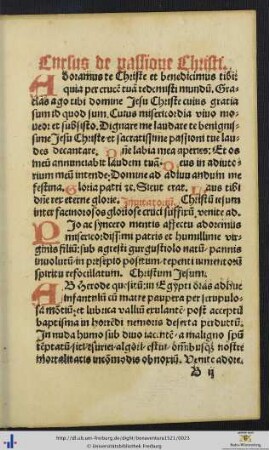 Cursus de passione Christi.
Adoramus te Christe et benedicimus tibi:
quia per crucē tuā redemisti mundū. Gra-
cias ago tibi domine Jesu Christe cuius gratia
sum id quod sum. Cuius misericordia viuo mo-
ueor et subsisto. Dignare me laudare te benignis-
sime Jesu Christe et sacratissime passioni tue lau-
des decantare. Dñe labia mea aperies: Et os
meū annunciabit laudem tuā. Deus in adiuto-
rium meū intende: Domine ad adiuuandum me
festina. Gloria patri ꝛc. Sicut erat. Laus tibi
dñe rex eterne glorie. Inuitatoriū. Christū iesum
inter facinorosos gloriose cruci suffixū, venite ad.
Pio ac syncero mentis affectu adoremus
misericordissimi patris et humillime vir-
ginis filiū: sub agresti gurgustiolo natū: pannis
inuolutū in presepio positum: repenti iumentorū
spiritu refocillatum. Christum Jesum.
AB Herode quesitū: in Egypti oras adhuc
infantulū cū matre paupera per scrupulo-
sa mōtiū: et lubrica valliū exulantē: post acceptū
baptisma in horrēdi nemoris deserta perductū.
In nuda humo sub diuo iacentē: a maligno spū
tēptatū: siti: esurie: algori: estui: oīnibusq̄ nostre
mortalitatis incōmodis obnoxiū. Uenite adore.
B ij
http://dl.ub.uni-freiburg.de/diglit/bonaventura1521/0023
© Universitätsbibliothek Freiburg
Baden-Württemberg